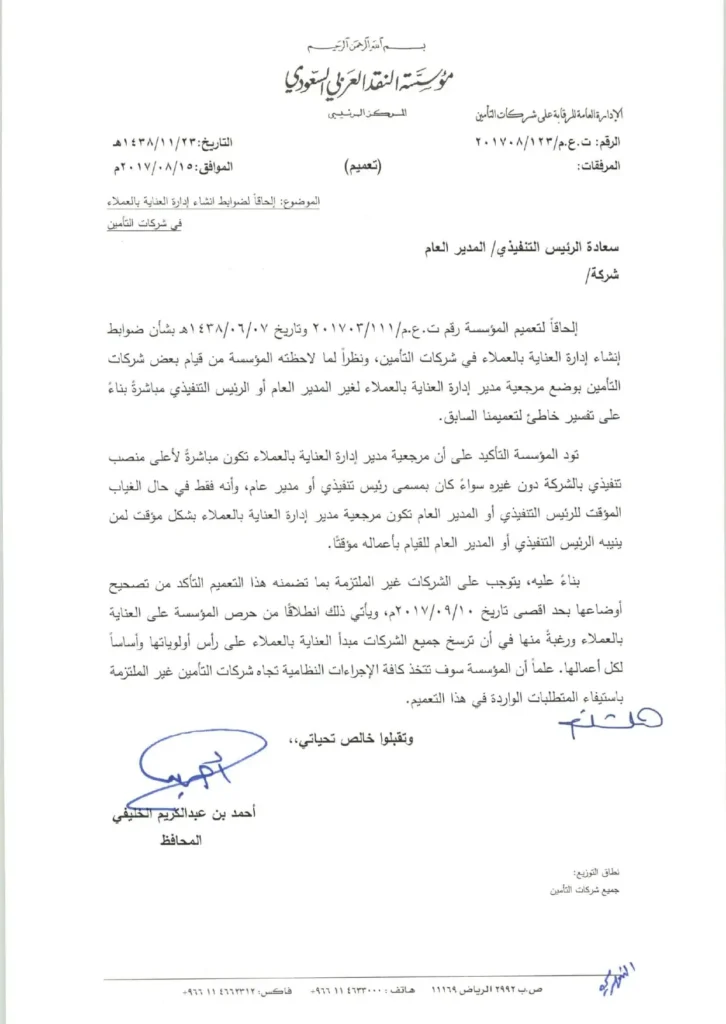 بسم الله الرحمن الرحيم
مؤسسة النقد العربي السعودي
الإدارة العامة للرقابة على شركات التأمين
المركز الرئيسي
الرقم: ت.ع.م/٢٠١٧٠٨/١٢٣
التاريخ: ١٤٣٨/١١/٢٣هـ
المرفقات:
(تعميم)
الموافق: ٢٠١٧/٠٨/١٥م
الموضوع: إلحاقاً لضوابط انشاء إدارة العناية بالعملاء
في شركات التأمين
سعادة الرئيس التنفيذي/ المدير العام
شركة/
إلحاقاً لتعميم المؤسسة رقم ت.ع.م/٢٠١٧٠٣/١١١ وتاريخ ١٤٣٨/٠٦/٠٧هـ بشأن ضوابط
إنشاء إدارة العناية بالعملاء في شركات التأمين، ونظراً لما لاحظته المؤسسة من قيام بعض شركات
التأمين بوضع مرجعية مدير إدارة العناية بالعملاء لغير المدير العام أو الرئيس التنفيذي مباشرةً بناءً
على تفسير خاطئ لتعميمنا السابق.
تود المؤسسة التأكيد على أن مرجعية مدير إدارة العناية بالعملاء تكون مباشرةً لأعلى منصب
تنفيذي بالشركة دون غيره سواءً كان بمسمى رئيس تنفيذي أو مدير عام، وأنه فقط في حال الغياب
المؤقت للرئيس التنفيذي أو المدير العام تكون مرجعية مدير إدارة العناية بالعملاء بشكل مؤقت لمن
ينيبه الرئيس التنفيذي أو المدير العام للقيام بأعماله مؤقتًا.
بناءً عليه، يتوجب على الشركات غير الملتزمة بما تضمنه هذا التعميم التأكد من تصحيح
أوضاعها بحد اقصى تاريخ ٢٠١٧/٠٩/١٠م، ويأتي ذلك انطلاقًا من حرص المؤسسة على العناية
بالعملاء ورغبةً منها في أن ترسخ جميع الشركات مبدأ العناية بالعملاء على رأس أولوياتها وأساساً
لكل أعمالها. علماً أن المؤسسة سوف تتخذ كافة الإجراءات النظامية تجاه شركات التأمين غير الملتزمة
باستيفاء المتطلبات الواردة في هذا التعميم.
وتقبلوا خالص تحياتي،،
أحمد بن عبدالكريم الخليفي
المحافظ
نطاق التوزيع:
جميع شركات التأمين
ص.ب ٢٩٩٢ الرياض ١١١٦٩ هاتف: ٤٦٣٣٠٠٠ ١١ ٩٦٦+ فاكس: ٤٦٦٢٣١٢ ١١ ٩٦٦+